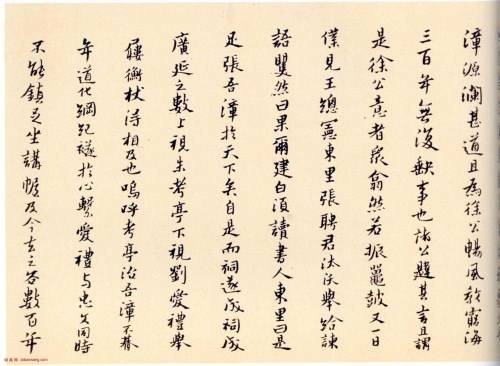 漳源瀾甚道且為徐公暢風教窮海
三百年無復軼事也諸公韙其言且謂
是徐公意者衆翕然若振鼉鼓又一日
僕見王總憲東里張聘君汰沃舉給諫
語矍然曰果爾建白須讀書人東里曰是
足張吾漳於天下矣自是而祠遂成祠成
廣延之數上視朱考亭下視劉愛禮舉
屨衡杖得相及也嗚呼考亭治吾漳不朞
年道化綱紀於心繫愛禮与忠文同時
不能鎮之坐講幄及今去之各數百年